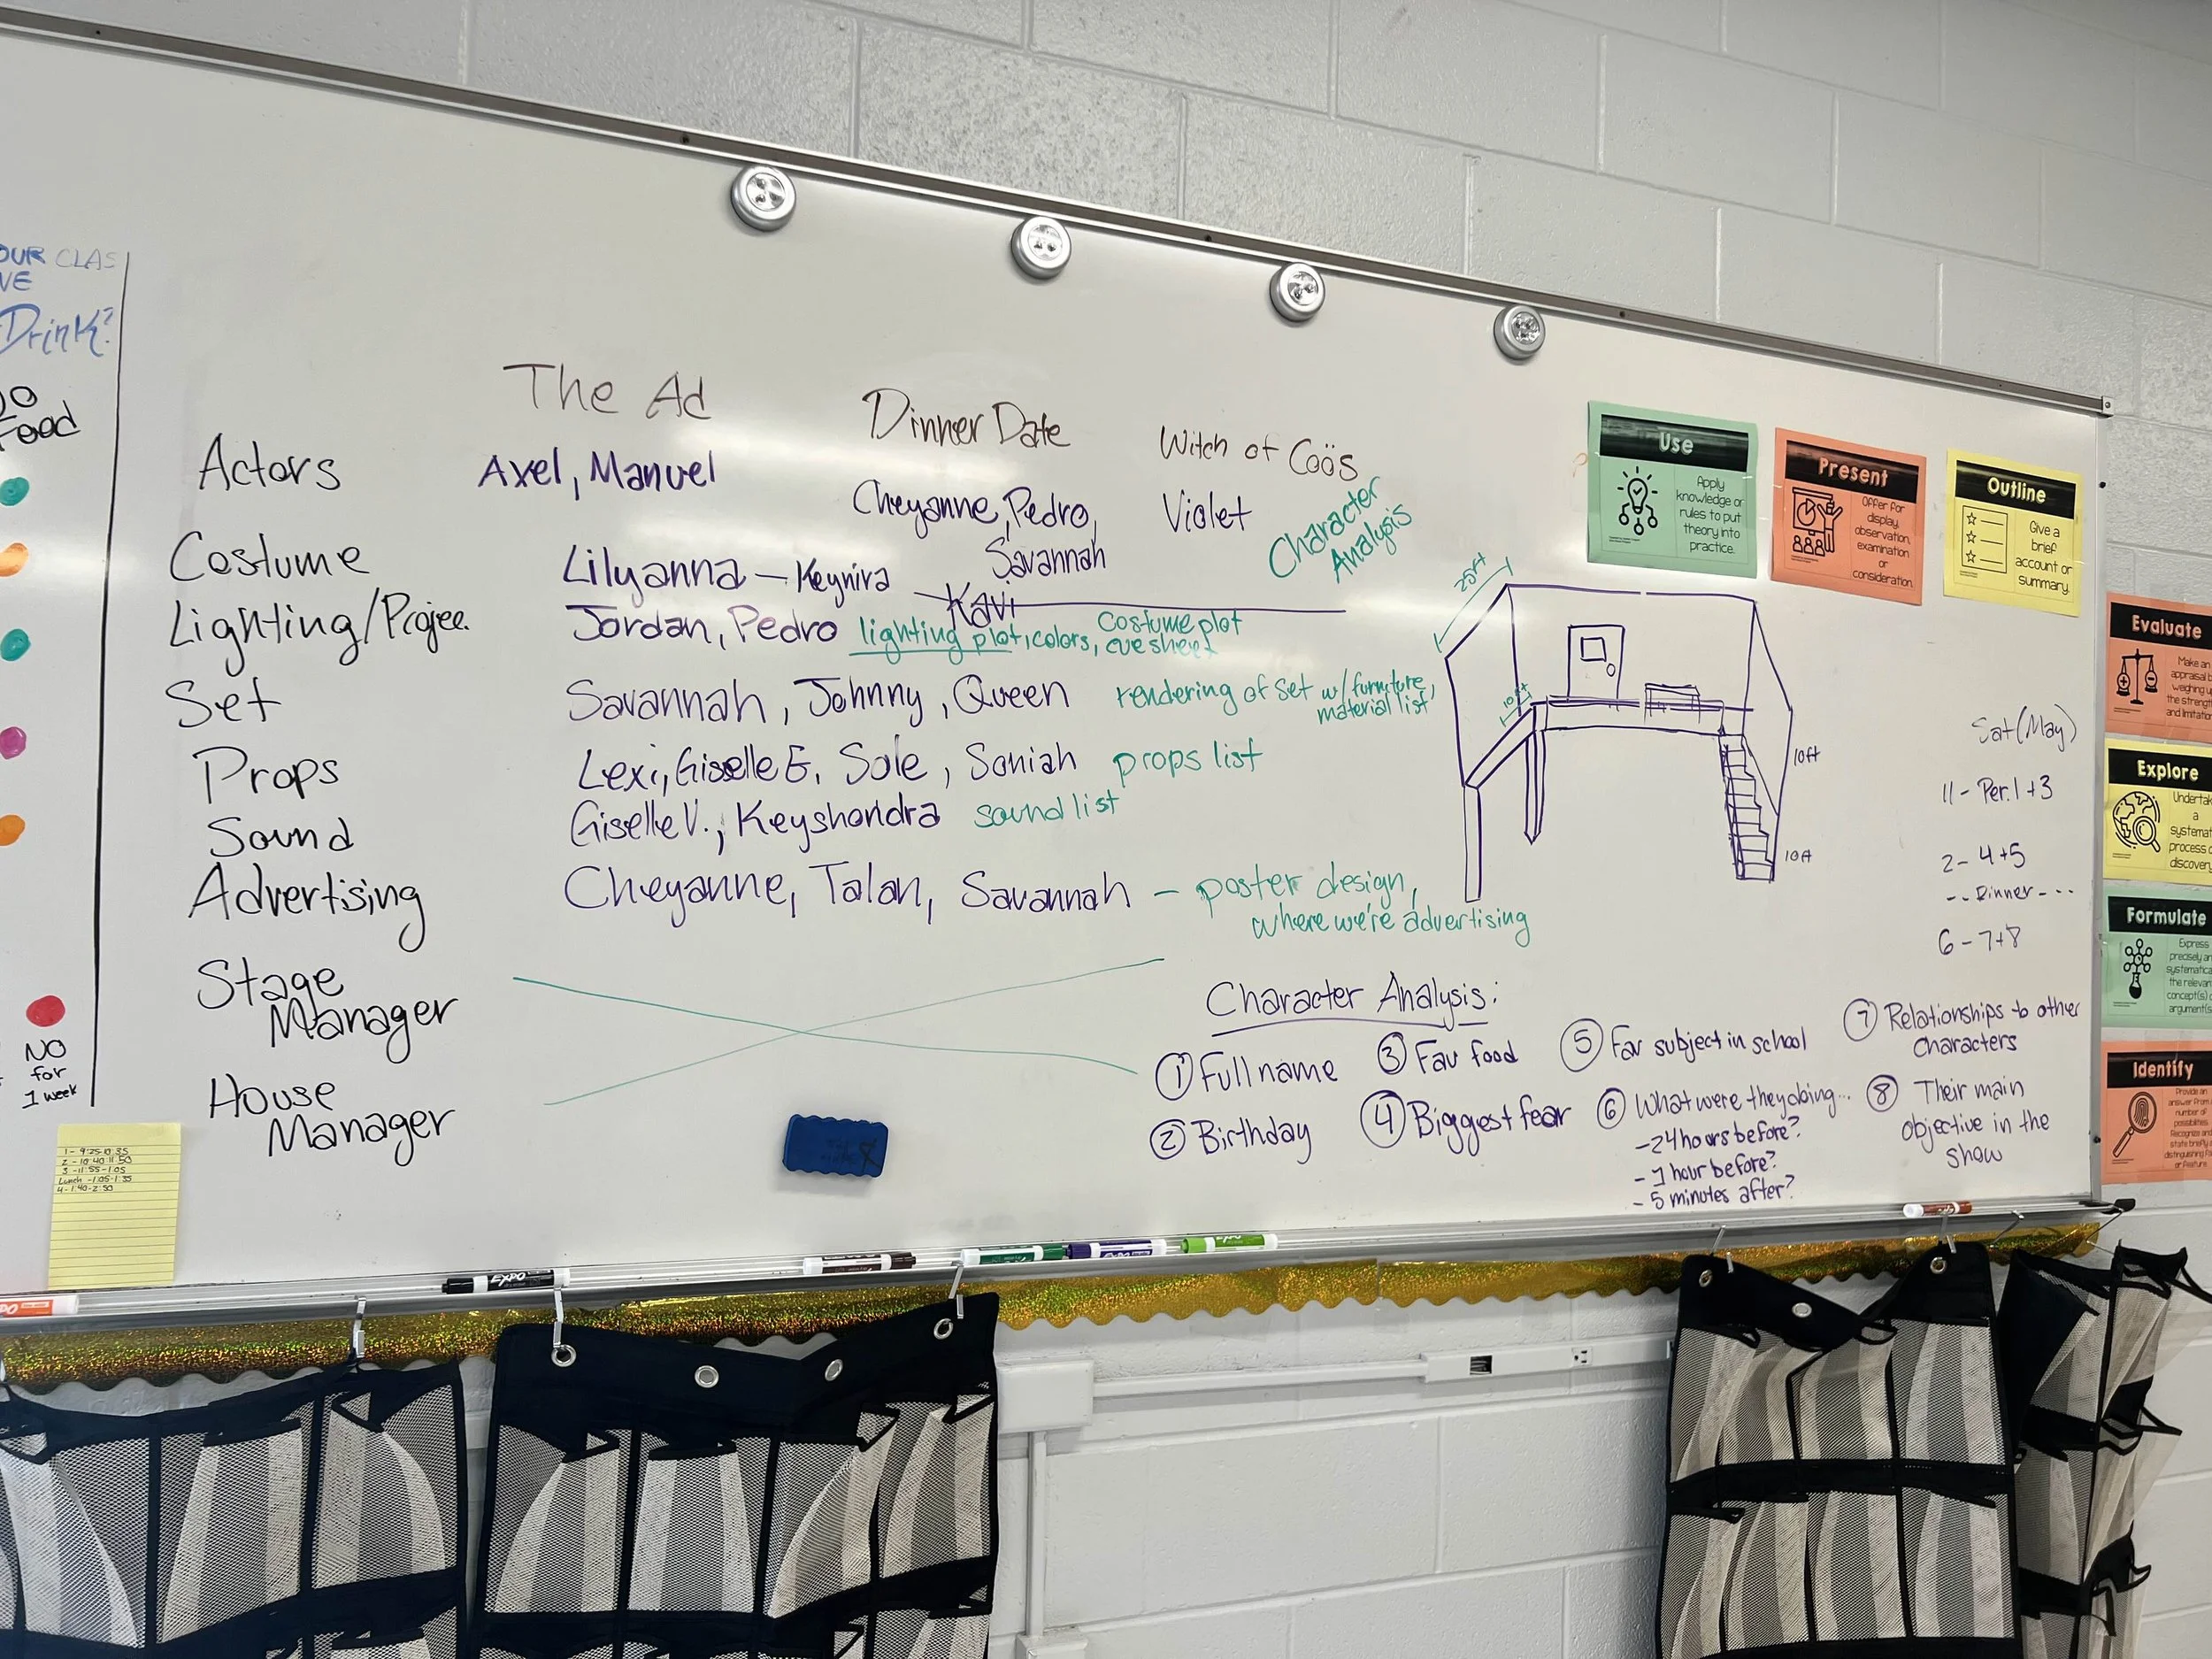 OUR CLAS
VE
Drink?
Food
NO
for
1 week
1 - 9:25-10:35
2 - 10:40-11:50
3 - 11:55-1:05
Lunch - 1:05-1:35
4 - 1:40-2:50
The Ad
Dinner Date
Witch of Coös
Actors
Axel, Manuel
Cheyanne, Pedro,
Savannah
Violet
Character
Analysis
Costume
Lilyanna - Keynira
Kavi
Costume plot
Lighting/Projec.
Jordan, Pedro
lighting plot, colors, cue sheet
Set
Savannah, Johnny, Queen
rendering of set w/ furniture,
material list
Props
Lexi, Giselle E, Sole, Soniah
props list
Sound
Giselle V., Keyshondra
sound list
Advertising
Cheyanne, Talan, Savannah
- poster design,
where we're advertising
Stage
Manager
House
Manager
25ft
10ft
10ft
10ft
Sat (May)
11 - Per. 1 + 3
2 - 4 + 5
- - Dinner - - - -
6 - 7 + 8
Character Analysis:
① Full name
② Birthday
③ Fav food
④ Biggest fear
⑤ Fav subject in school
⑥ What were they doing...
- 24 hours before?
- 1 hour before?
- 5 minutes after?
⑦ Relationships to other
characters
⑧ Their main
objective in the
show
Use
Apply
knowledge or
rules to put
theory into
practice.
Present
Offer for
display,
observation,
examination
or
consideration.
Outline
Give a
brief
account or
summary.
Evaluate
Make an
appraisal b
weighing u
the strengt
and limitatio
Explore
Undertak
a
systemat
process o
discovery
Formulate
Express
precisely an
systematica
the relevan
concept(s) o
argument(s
Identify
Provide an
answer from a
number of
possibilities.
Recognize and
state briefly a
distinguishing fa
or feature.
EXPO
EXPO
EXPO